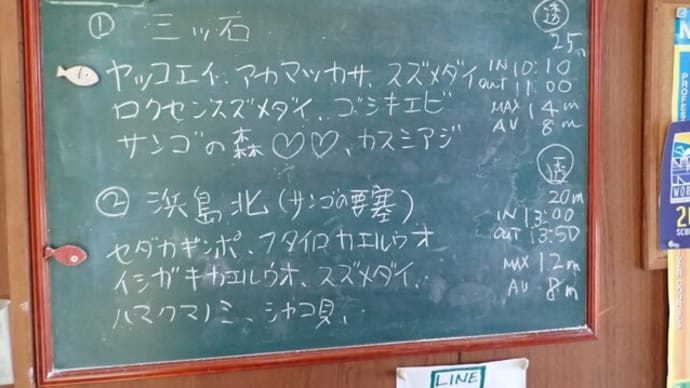 ① 三ッ石
透
25m
ヤッコエイ、アカマツカサ、スズメダイ
IN 10:10
OUT 11:00
ロクセンスズメダイ、ゴシキエビ
MAX 14m
サンゴの森♡♡、カスミアジ
AV 8m
② 浜島北(サンゴの要塞)
透
20m
IN 13:00
セダカギンポ、フタイロカエルウオ
OUT 13:50
イシガキカエルウオ、スズメダイ、
MAX 12m
ハマクマノミ、シャコ貝、
AV 8m
LINE